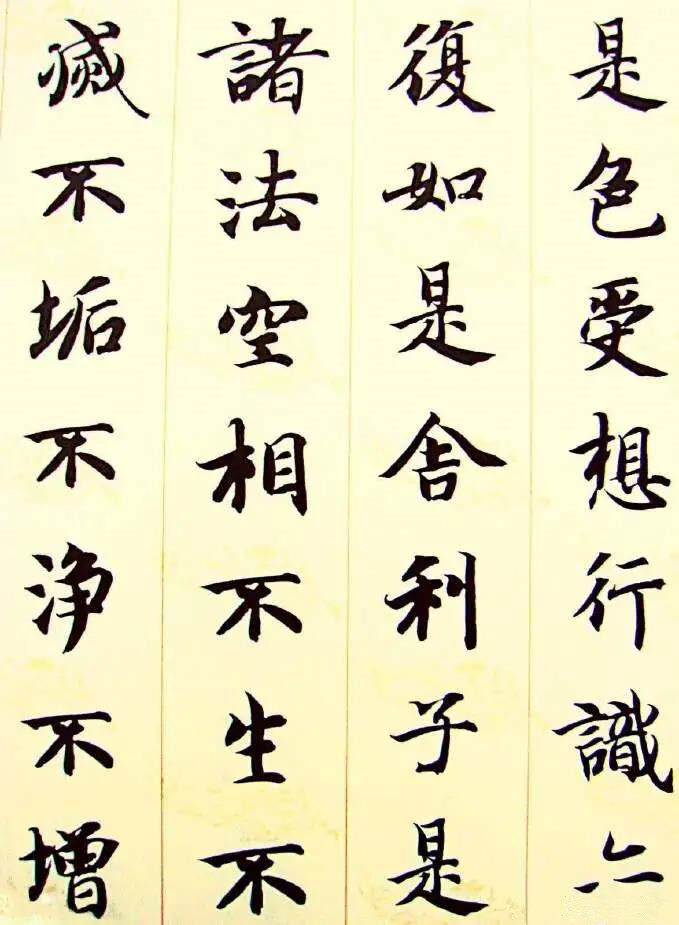 是色受想行識亦
復如是舍利子是
諸法空相不生不
滅不垢不浄不增